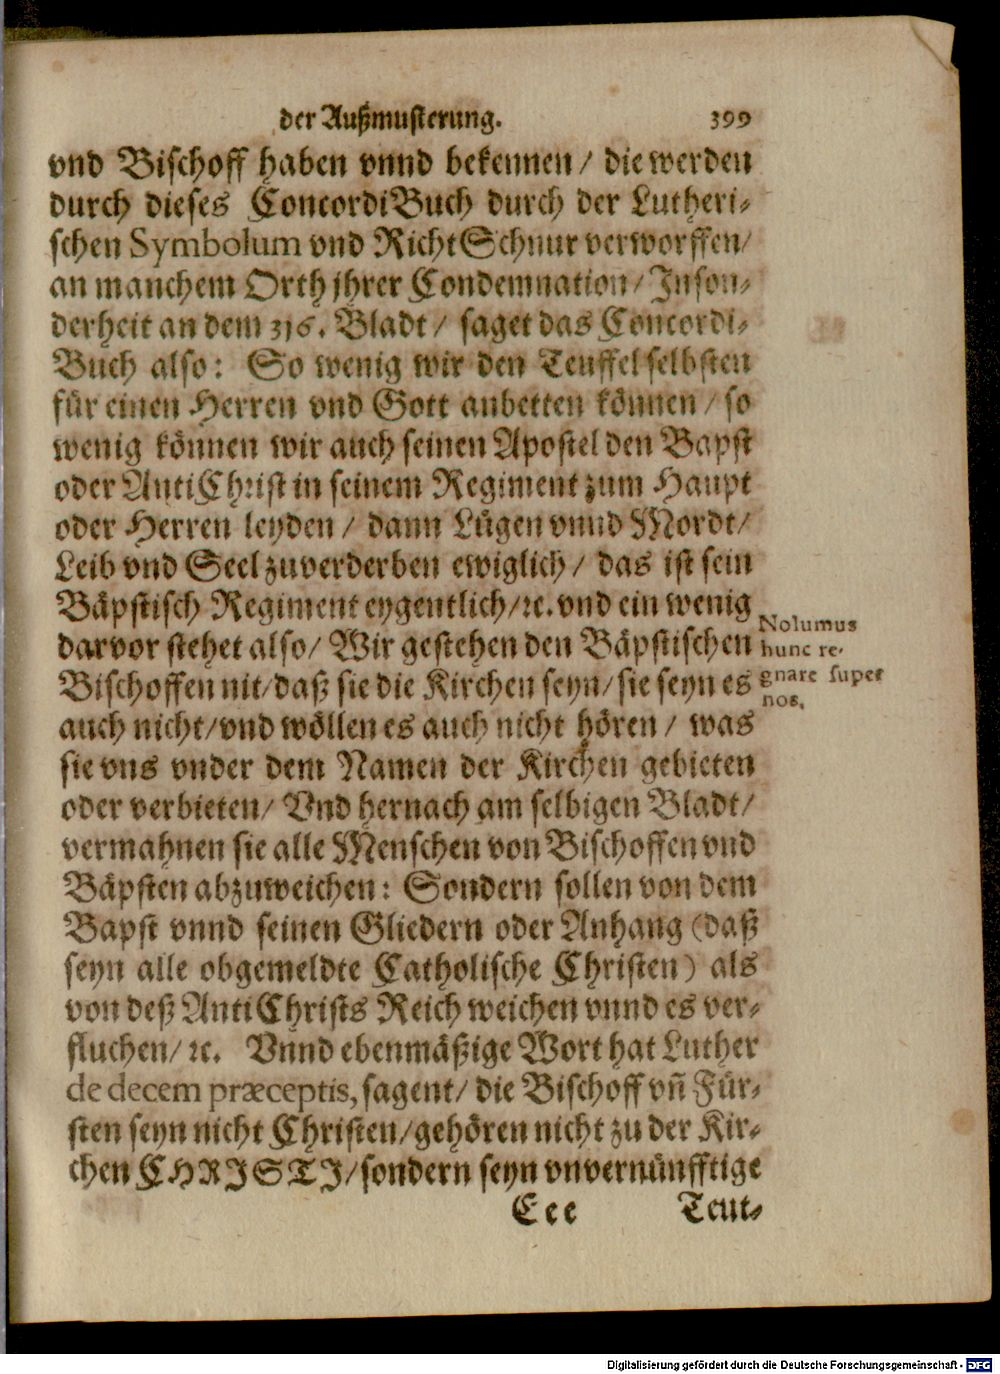 der Außmusterung. 399
vnd Bischoff haben vnnd bekennen / die werden
durch dieses ConcordiBuch durch der Lutheri-
schen Symbolum vnd RichtSchnur verworffen/
an manchem Orth jhrer Condemnation / Inson-
derheit an dem 316. Bladt / saget das Concordi-
Buch also: So wenig wir den Teuffel selbsten
für einen Herren vnd Gott anbetten können / so
wenig können wir auch seinen Apostel den Bapst
oder AntiChrist in seinem Regiment zum Haupt
oder Herren leyden / dann Lügen vnnd Mordt/
Leib vnd Seel zuverderben ewiglich / das ist sein
Bäpstisch Regiment eygentlich/ꝛc. vnd ein wenig
darvor stehet also/ Wir gestehen den Bäpstischen
Bischoffen nit/daß sie die Kirchen seyn/sie seyn es
auch nicht/vnd wöllen es auch nicht hören / was
sie vns vnder dem Namen der Kirchen gebieten
oder verbieten/ Vnd hernach am selbigen Bladt/
vermahnen sie alle Menschen von Bischoffen vnd
Bäpsten abzuweichen: Sondern sollen von dem
Bapst vnnd seinen Gliedern oder Anhang (daß
seyn alle obgemeldte Catholische Christen) als
von deß AntiChrists Reich weichen vnnd es ver-
fluchen/ ꝛc. Vnnd ebenmäßige Wort hat Luther
de decem præceptis, sagent/ die Bischoff vñ Für-
sten seyn nicht Christen/gehören nicht zu der Kir-
chen CHRISTI/sondern seyn vnvernünfftige
Eee Teut-
Nolumus
hunc re-
gnare super
nos.
Digitalisierung gefördert durch die Deutsche Forschungsgemeinschaft - DFG